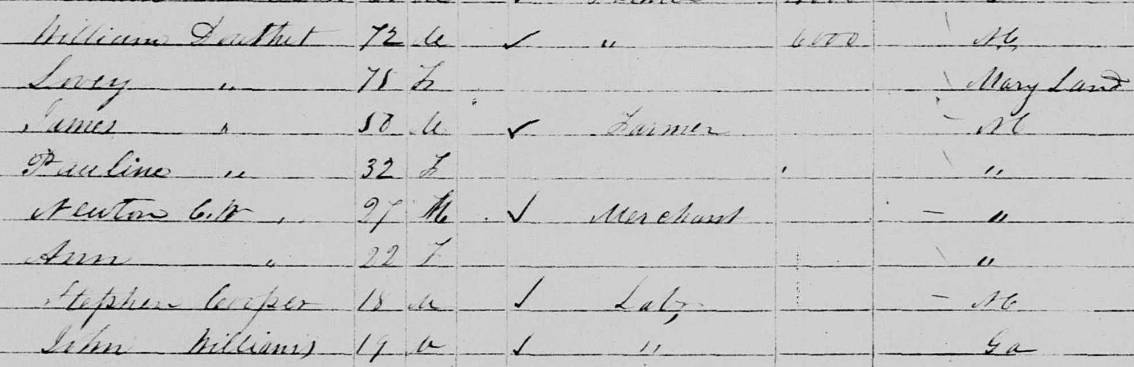 William Douthet 72 M ✓ " 6000 NC
Lovey " 75 F Mary Land
James " 50 M ✓ Farmer NC
Pauline " 32 F "
Newton C.W " 27 M ✓ Merchant "
Ann " 22 F "
Stephen Cooper 18 M ✓ Labr NC
John Williams 19 M ✓ " Ga